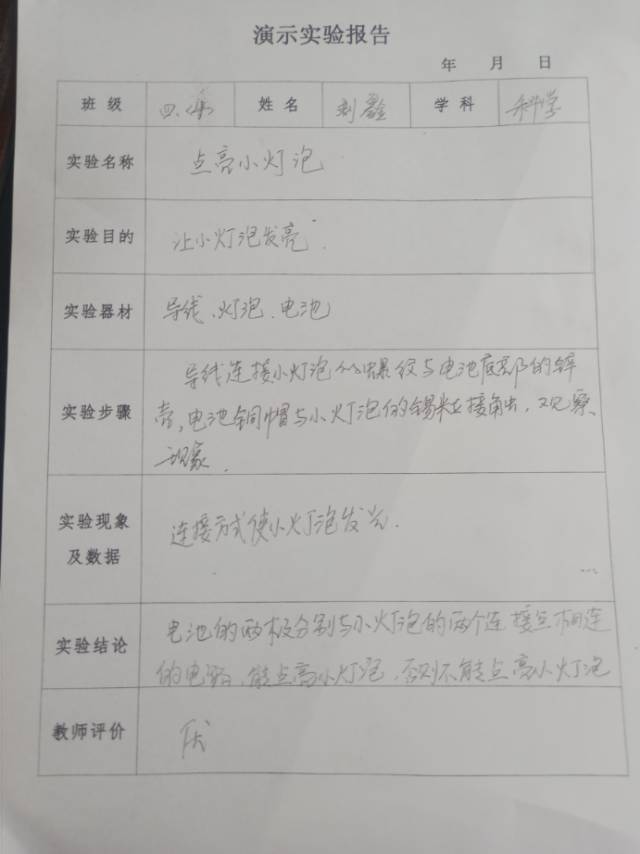 演示实验报告
年 月 日
班级 四. 姓名 刘鑫 学科 科学
实验名称 点亮小灯泡
实验目的 让小灯泡发亮.
实验器材 导线、灯泡、电池
实验步骤 导线连接小灯泡的螺纹与电池底部的锌
壳,电池铜帽与小灯泡的锡粒接触,观察
现象.
实验现象及数据 连接方式使小灯泡发光.
实验结论 电池的两极分别与小灯泡的两个连接点相连
的电路,能点亮小灯泡,否则不能点亮小灯泡
教师评价